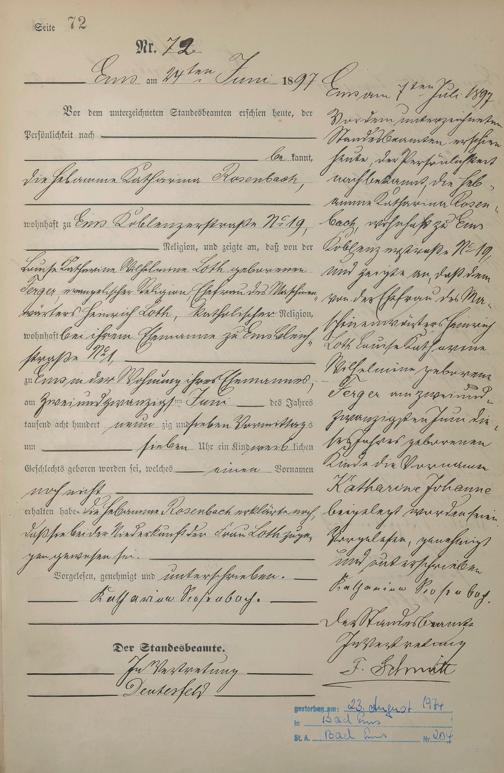 Seite 72
Nr. 72
Ems am 24ten Juni 1897
Vor dem unterzeichneten Standesbeamten erschien heute, der
Persönlichkeit nach
be kannt,
die Hebamme Katharina Rosenbach,
wohnhaft zu Ems Koblenzerstraße No 19,
Religion, und zeigte an, daß von der
Louise Katharine Wilhelmine Loth geborenen
evangelischer Religion, Ehefrau des Maschinen-
wärters Heinrich Loth, katholischer Religion,
wohnhaft bei ihrem Ehemanne zu Ems
straße No 1
zu Ems, in der Wohnung ihres Ehemannes,
am zweiundzwanzigten Juni des Jahres
tausend acht hundert neun zig und sieben Vormittags
um sieben Uhr ein Kind weiblichen
Geschlechts geboren worden sei, welches einen Vornamen
noch nicht
erhalten habe. Die Hebamme Rosenbach erklärte noch,
daß sie bei der Niederkunft der Frau Loth zuge-
gen gewesen sei.
Vorgelesen, genehmigt und unterschrieben.
Katharina Rosenbach.
Der Standesbeamte.
In Vertretung
Ems am 1ten Juli 1897
Vor dem unterzeichneten
Standesbeamten erschien
heute, der Persönlichkeit
nach bekannt, die Heb-
amme Katharina Rosen-
bach, wohnhaft zu Ems
Koblenzerstraße No 19,
und zeigte an, daß dem
von der Ehefrau des Ma-
schinenwärters Heinrich
Loth Louise Katharine
Wilhelmine geborene
am zweiund-
zwanzigsten Juni die-
ses Jahres geborenen
Kinde die Vornamen
Katharine Johanna
beigelegt worden seien
Vorgelesen, genehmigt
und unterschrieben
Katharina Rosenbach.
Der Standesbeamte
In Vertretung
F. Schmitt
gestorben am: 23. August 1974
in Bad Ems
St. A. Bad Ems Nr. 204